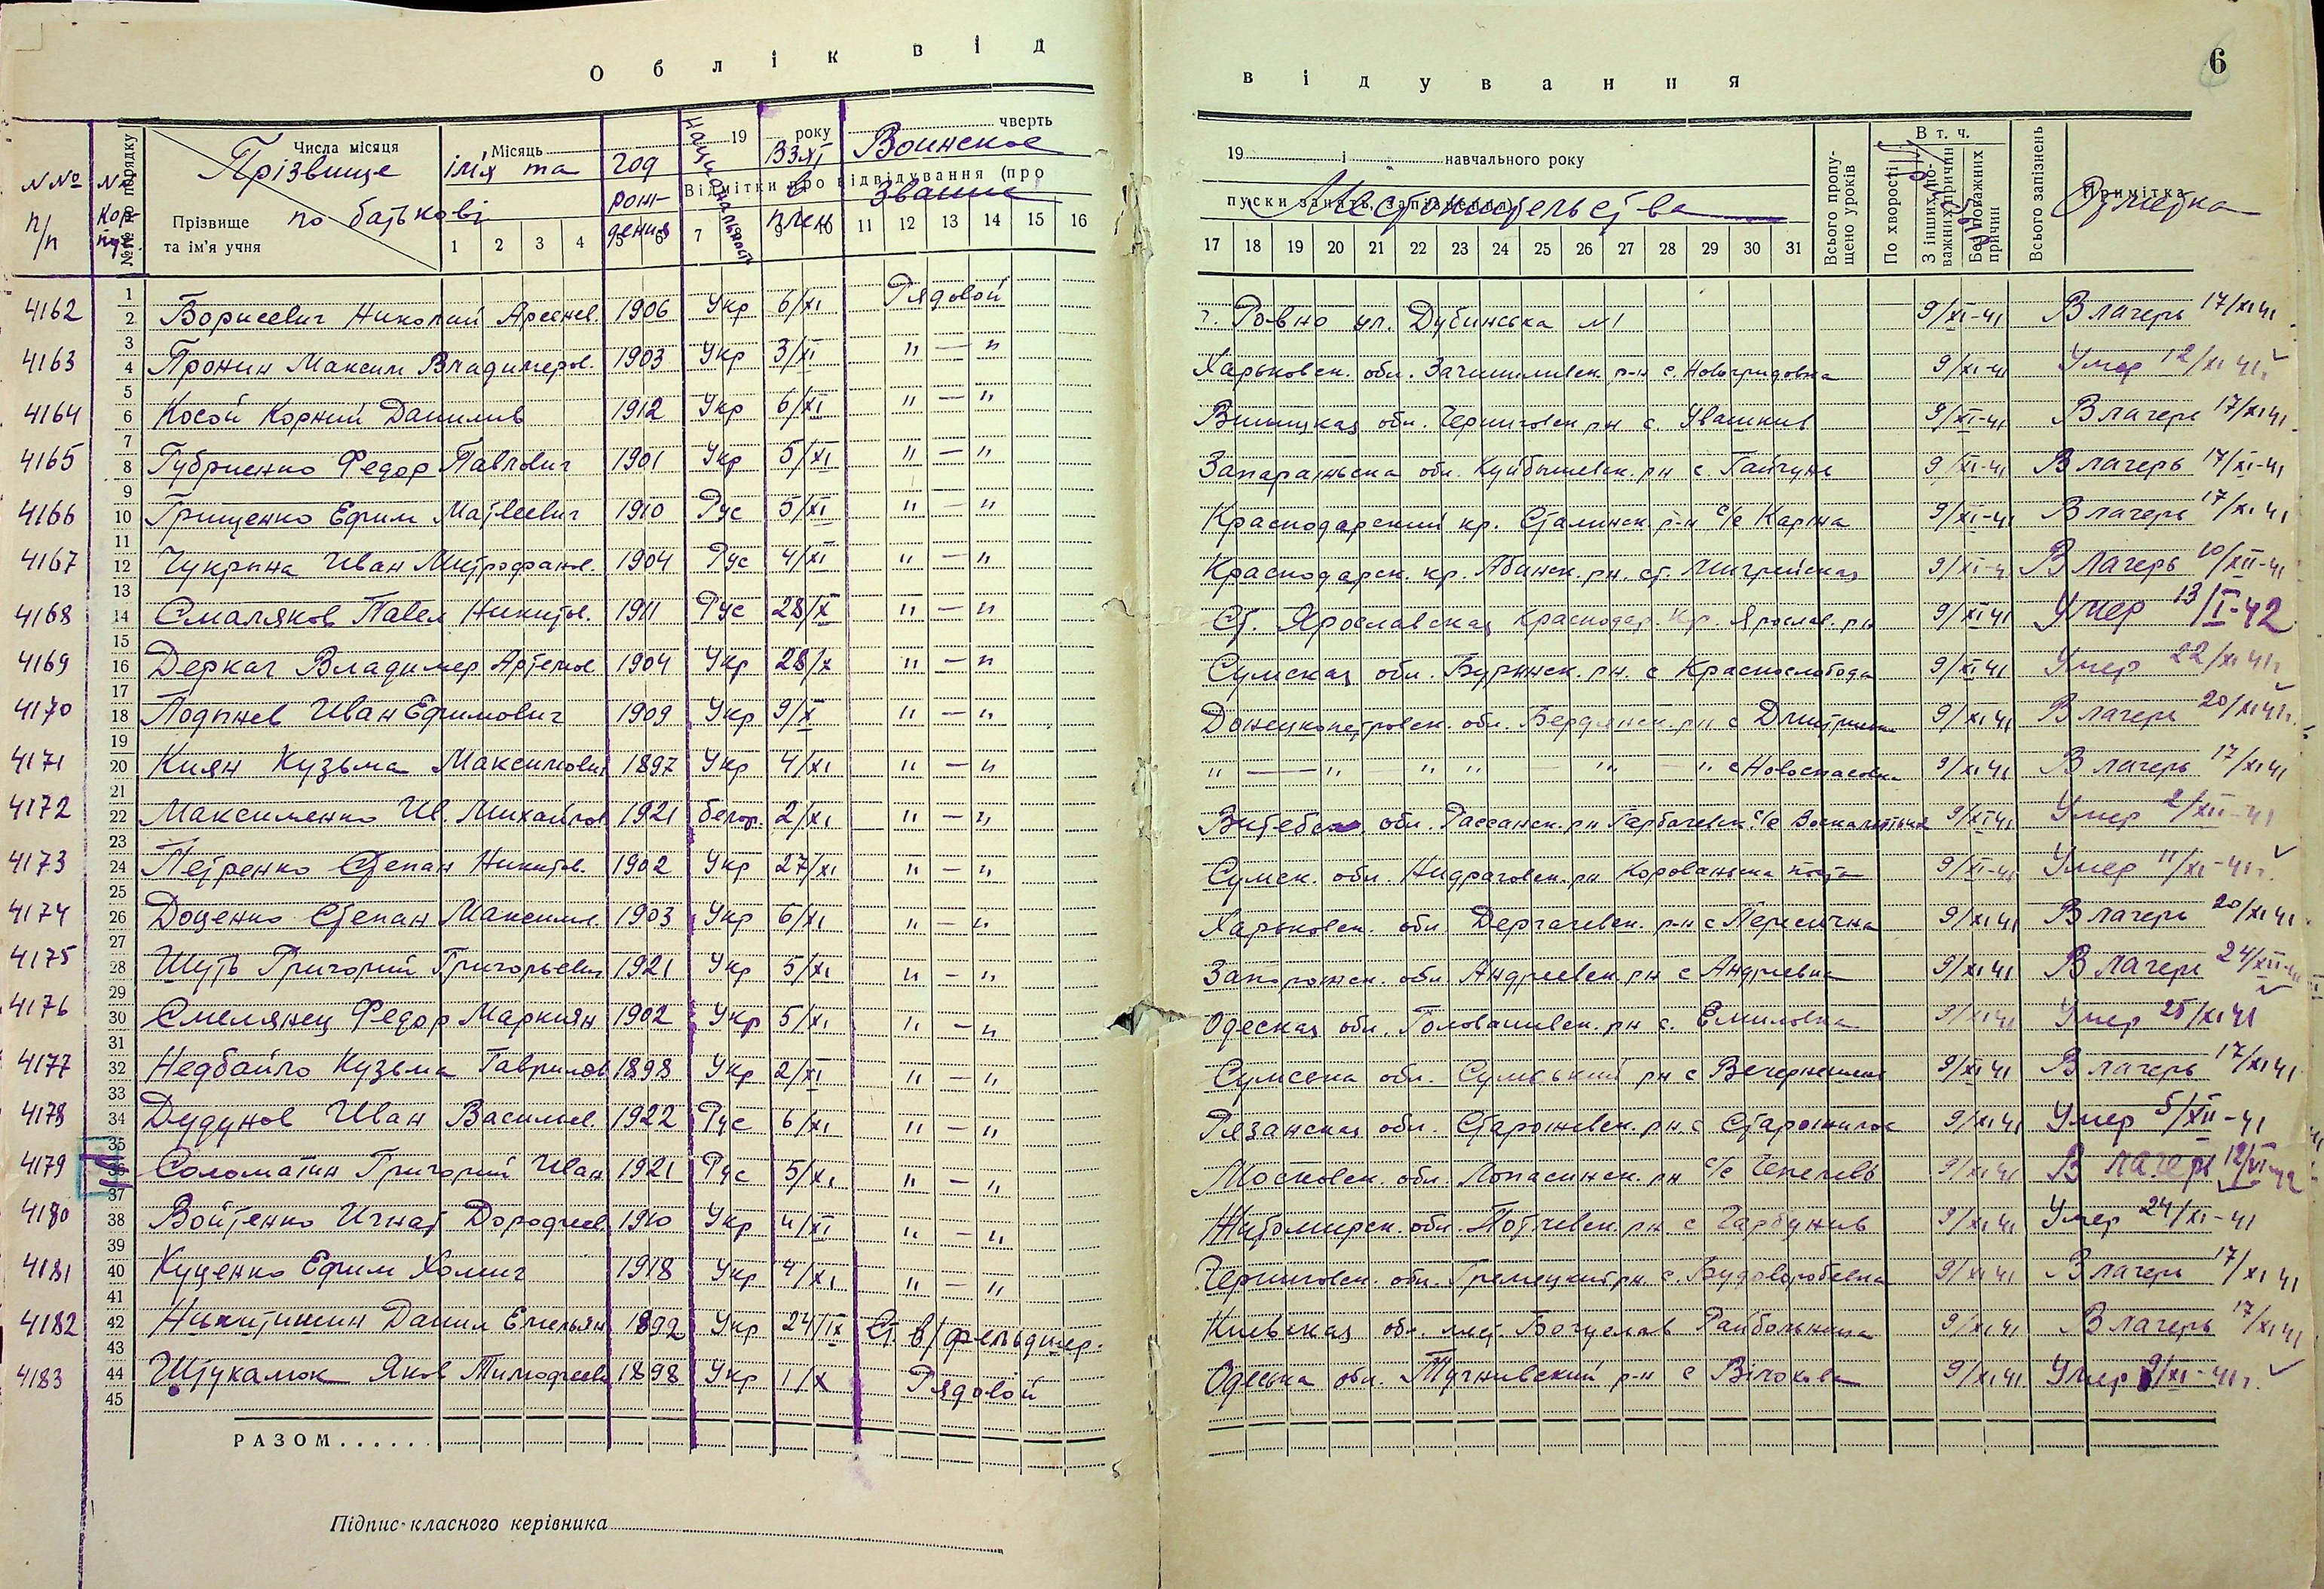 Облік від
відування
6
№№ п/п
№№ порядку
Числа місяця
Прізвище ім'я та по батькові
Прізвище та ім'я учня
Місяць
год рождения
национальность
19 року
Взят в плен
чверть
Воинское звание
Відмітки про відвідування (про
19 і навчального року
пуски занять, запізнення)
Местожительства
Всього пропущено уроків
По хворості
В т. ч.
З інших поважних причин
Без поважних причин
Всього запізнень
Примітка
Отметка
1 2 3 4 5 6 7 9 10 11 12 13 14 15 16
17 18 19 20 21 22 23 24 25 26 27 28 29 30 31
4162 Борисевич Николай Арсенев. 1906 Укр 6/XI Рядовой г. Ровно ул. Дубинська №1 9/XI-41 В лагерь 17/XI 41
4163 Пронин Максим Владимиров. 1903 Укр 3/XI " — " Харьковск. обл. Зачипиливск. р-н с. 9/XI-41 Умер 12/XI 41г.
4164 Косой Корний Данилив 1912 Укр 6/XI " — " Винницкая обл. р-н с. Ивашкив 9/XI-41 В лагерь 17/XI 41
4165 Губриенко Федор Павлович 1901 Укр 5/XI " — " Запарожьска обл. Куйбышевск. р-н с. Гайчунь 9/XI-41 В лагерь 17/XI-41
4166 Грищенко Ефим Матвеевич 1910 Рус 5/XI " — " Краснодарский кр. Сталинск. р-н с/с Каржа 9/XI-41 В лагерь 17/XI 41
4167 Чукрина Иван Митрофанов. 1904 Рус 4/XI " — " Краснодарск. кр. Абинск. рн. ст. 9/XI-4 В лагерь 10/XII-41
4168 Смаляков Павел Никитов. 1911 Рус 28/X " — " Ст. Ярославская Краснодар. Кр. Ярослав. рн 9/XI 41 Умер 13/I-42
4169 Деркач Владимер Артемов. 1904 Укр 28/X " — " Сумская обл. Бурынск. рн. с Краснослобода 9/XI 41 Умер 22/XI 41г
4170 Лодынев Иван Ефимович 1909 Укр 9/X " — " обл. Бердянск. рн с 9/XI 41 В лагерь 20/XI 41г.
4171 Киян Кузьма Максимович 1897 Укр 4/XI " — " " — " — " " — " — " с Новоспасовка 9/XI 41 В лагерь 17/XI 41
4172 Максименко Ив. Михайлов 1921 белор. 2/XI " — " Витебск. обл. Рассанск. рн с/с 9/XI 41 Умер 2/XII-41
4173 Петренко Степан Никитов. 1902 Укр 27/XI " — " Сумск. обл. рн 9/XI-41 Умер 11/XI-41г.
4174 Доценко Степан Максимов. 1903 Укр 6/XI " — " Харьковск. обл. Дергачевск. р-н с Пересична 9/XI 41 В лагерь 20/XI 41
4175 Шуть Григорий Григорьевич 1921 Укр 5/XI " — " Запорожск. обл. Андреевск. рн с Андреевка 9/XI 41 В лагерь 24/XII-41
4176 Смелянец Федор Маркиян 1902 Укр 5/XI " — " Одеская обл. Голованивск. рн с. Емиловка 9/XI 41 Умер 25/XI 41
4177 Недбайло Кузьма Гаврилов 1898 Укр 2/XI " — " Сумсска обл. Сумський рн с 9/XI 41 В лагерь 17/XI 41
4178 Дудунов Иван Василев. 1922 Рус 6/XI " — " Рязанская обл. Старожевск. рн. с Старожилов 9/XI 41 Умер 5/XII-41
4179 Соломатин Григорий Иван 1921 Рус 5/XI " — " Московск. обл. Лопасинск. рн с/с 9/XI 41 В лагерь 12/VI-42
4180 Войтенко Игнат Дорофеев. 1910 Укр 4/XI " — " Житомирск. обл. рн. с Гарбузив 9/XI 41 Умер 24/XI-41
4181 Куценко Ефим Хомич 1918 Укр 4/XI " — " Черниговск. обл. рн. с. 9/XI 41 В лагерь 17/XI 41
4182 Никитишин Данил Емельян 1892 Укр 24/IX Ст в/фельдшер. Киевская обл. мест. Богуслав Райбольница 9/XI 41 В лагерь 17/XI 41
4183 Штукамок Яков Тимофееви 1898 Укр 1/X Рядовой Одеська обл. р-н с 9/XI 41 Умер 9/XI-41г.
РАЗОМ......
Підпис класного керівника